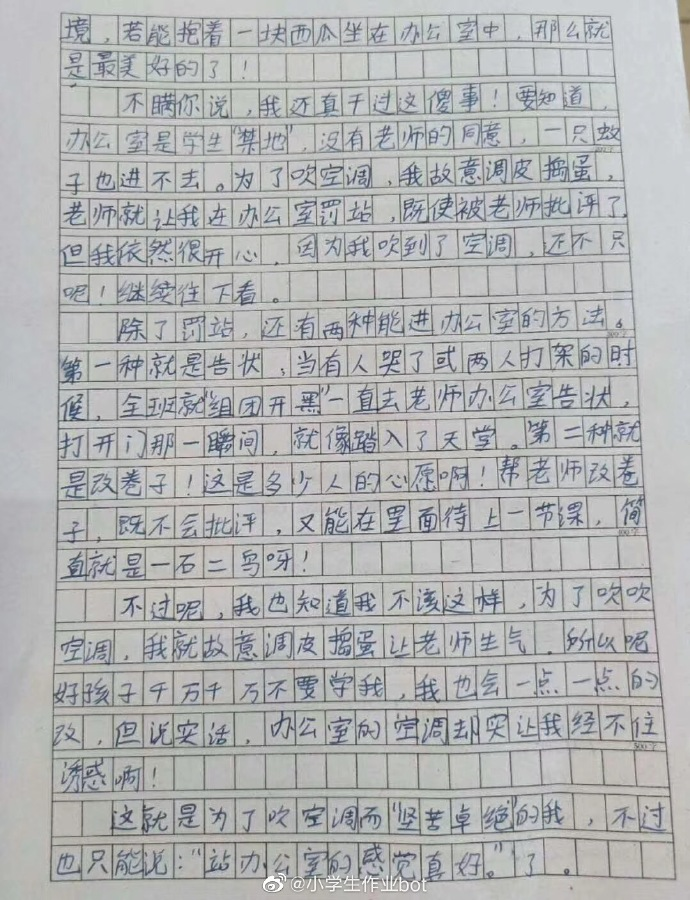 境，若能抱着一块西瓜坐在办公室中，那么就
是最美好的了！
不瞒你说，我还真干过这傻事！要知道，
办公室是学生“禁地”，没有老师的同意，一只蚊
子也进不去。为了吹空调，我故意调皮捣蛋，
老师就让我在办公室罚站，既使被老师批评了，
但我依然很开心，因为我吹到了空调，还不只
呢！继续往下看。
除了罚站，还有两种能进办公室的方法。
第一种就是告状，当有人哭了或两人打架的时
候，全班就“组团开黑”一直去老师办公室告状，
打开门那一瞬间，就像踏入了天堂。第二种就
是改卷子！这是多少人的心愿啊！帮老师改卷
子，既不会批评，又能在里面待上一节课，简
400字
直就是一石二鸟呀！
不过呢，我也知道我不该这样，为了吹吹
空调，我就故意调皮捣蛋让老师生气，所以呢
好孩子千万千万不要学我，我也会一点一点的
改，但说实话，办公室的空调却实让我经不住
500字
诱惑啊！
这就是为了吹空调而“坚苦卓绝”的我，不过
也只能说：“站办公室的感觉真好。”了。
@小学生作业bot